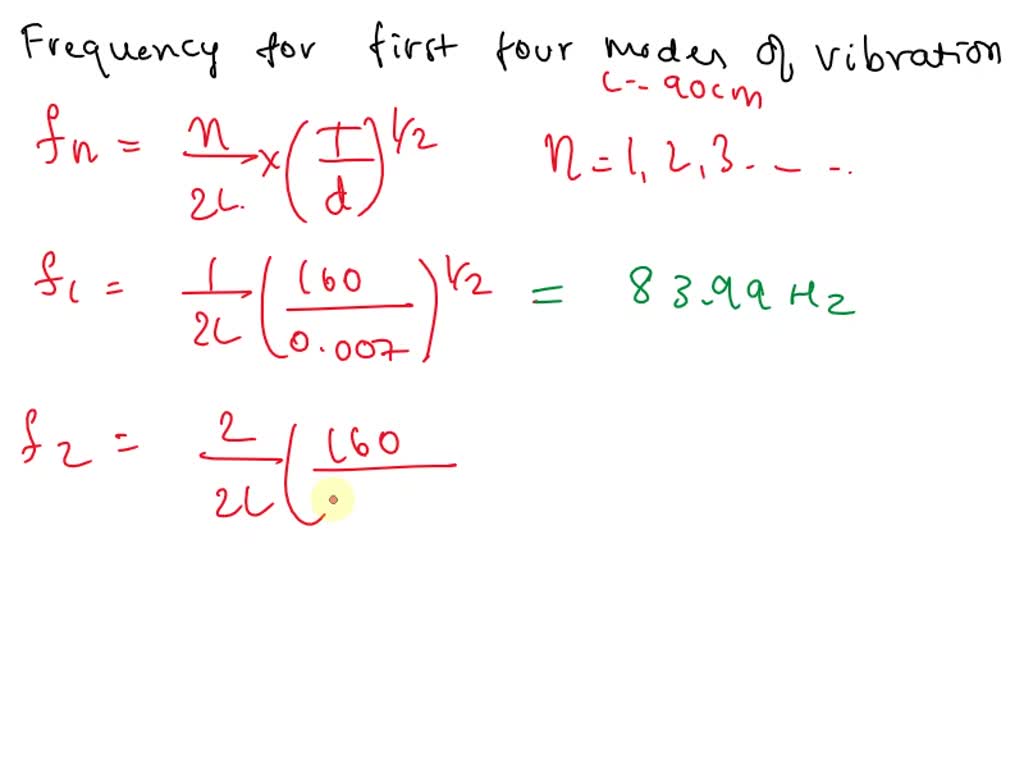 Frequency for first four modes of vibration
L-- 90cm
fn = n/2L × (T/d)^1/2 n=1, 2, 3. - - ..
f1 = 1/2L (160/0.007)^1/2 = 83.99 Hz
f2 = 2/2L (160